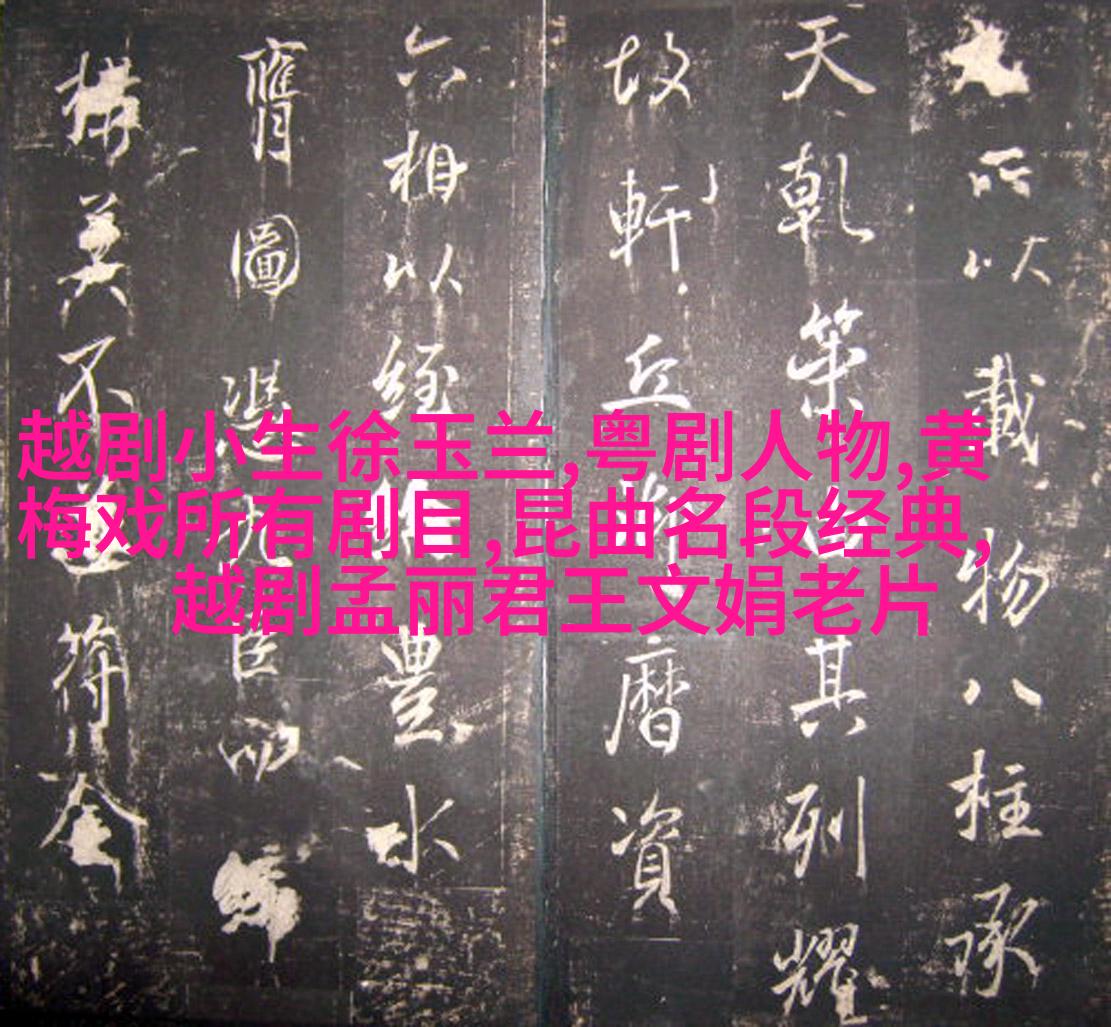 越剧小生徐玉兰,粤剧人物,黄
梅戏所有剧目,昆曲名段经典,
越剧孟丽君王文娟老片
所以載物八柱承
天乾策其列耀
故軒丘曆資
六相以經豐水
膺圖臣
構美不符奎